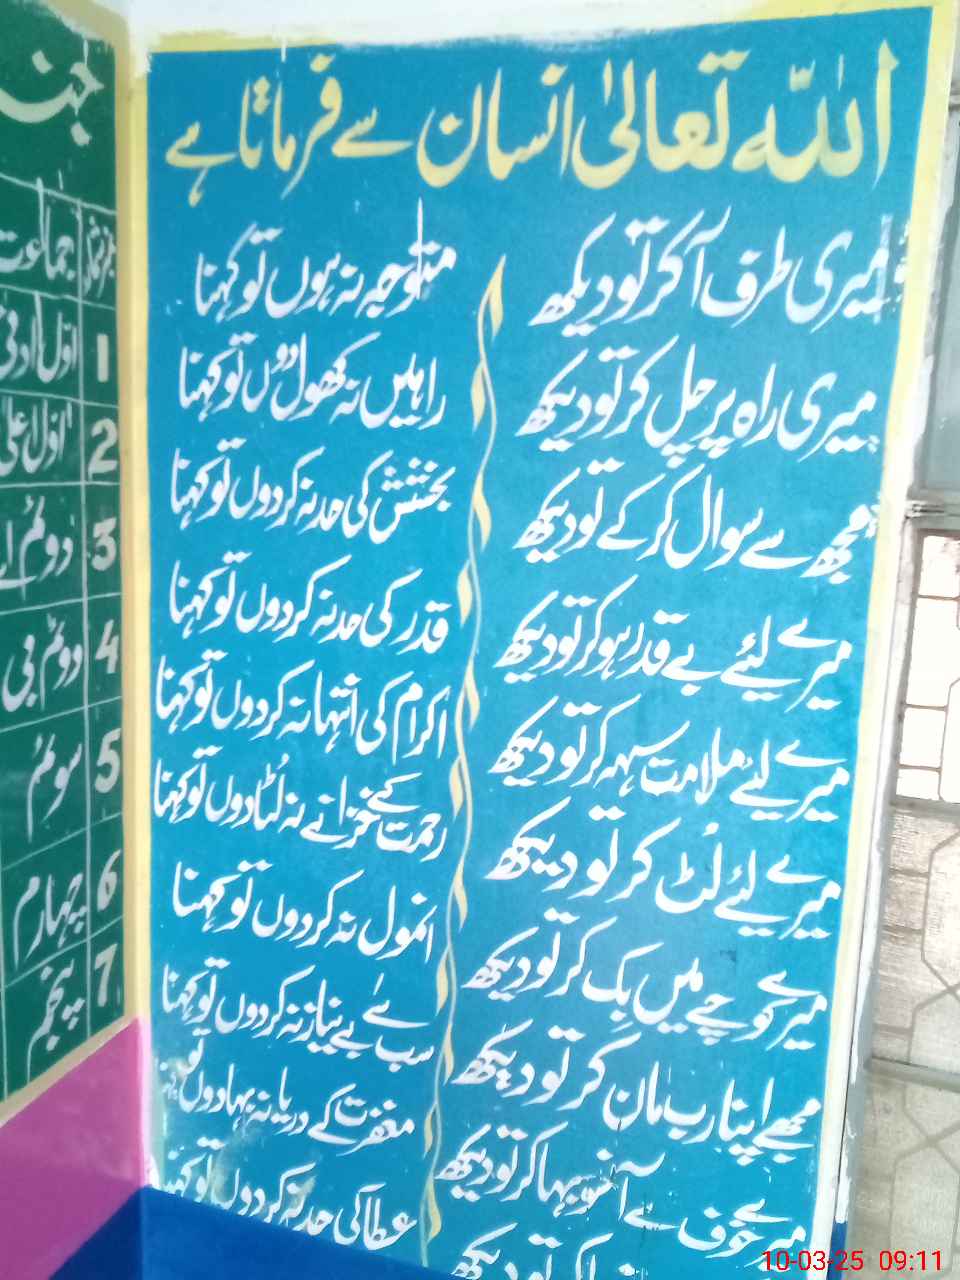 اللہ تعالیٰ انسان سے فرماتا ہے
میری طرف آ کر تو دیکھ متوجہ نہ ہوں تو کہنا
میری راہ پر چل کر تو دیکھ راہیں نہ کھول دوں تو کہنا
مجھ سے سوال کر کے تو دیکھ بخشش کی حد نہ کردوں تو کہنا
میرے لئیے بے قدر ہو کر تو دیکھ قدر کی حد نہ کردوں تو کہنا
میرے لیئے ملامت سہہ کر تو دیکھ اکرام کی انتہا نہ کردوں تو کہنا
میرے لیئے لُٹ کر تو دیکھ رحمت کے خزانے نہ لُٹا دوں تو کہنا
میرے کوچے میں بِک کر تو دیکھ انمول نہ کردوں تو کہنا
مجھے اپنا رب مان کر تو دیکھ سب سے بے نیاز نہ کردوں تو کہنا
میرے خوف سے آنسو بہا کر تو دیکھ مغفرت کے دریا نہ بہا دوں تو
کر تو دیکھ عطا کی حد نہ کردوں تو کہنا
نمبر شمار جماعت
1 اوّل ادنیٰ
2 اوّل اعلیٰ
3 دوئم اے
4 دوئم بی
5 سوئم
6 چہارم
7 پنجم
10-03-25 09:11